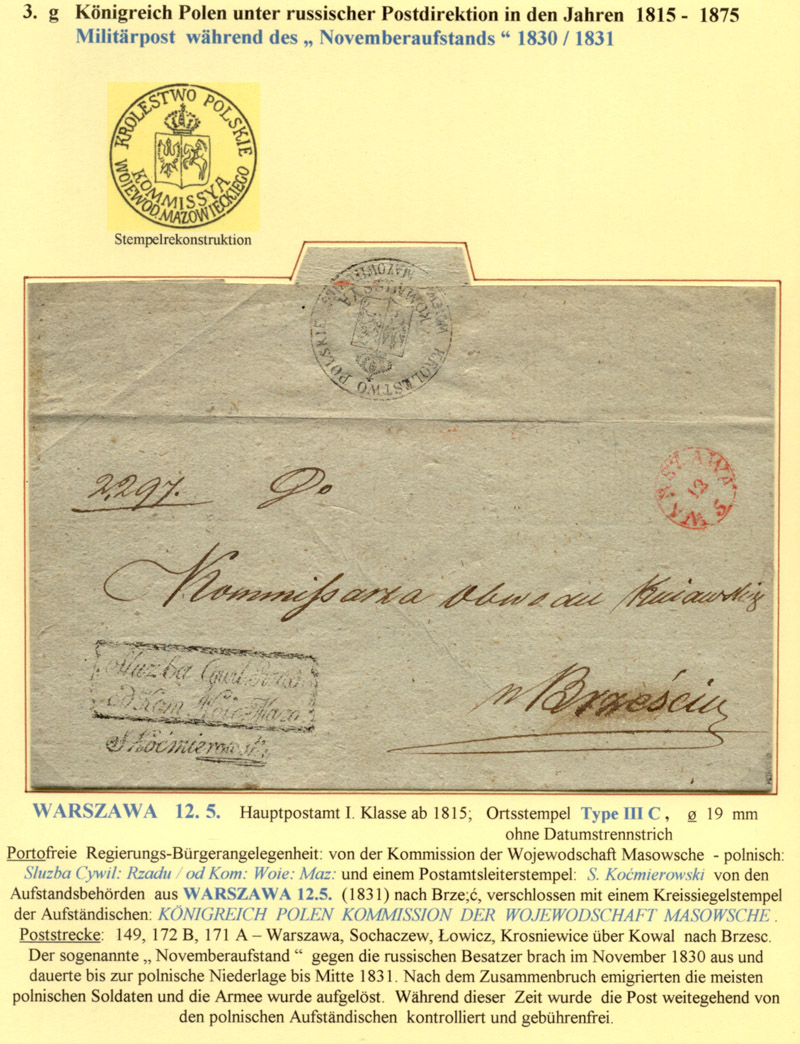 3. g Königreich Polen unter russischer Postdirektion in den Jahren 1815 - 1875
Militärpost während des „ Novemberaufstands “ 1830 / 1831
KROLESTWO POLSKIE
KOMMISSYA
WOJEWOD. MAZOWIECKIEGO
Stempelrekonstruktion
KROLESTWO POLSKIE
2,297. Do
WARSZAWA
12
5
Kommissarza Obwodu Kuiawskię
w Brześciu
Sluzba Cywil: Rzadu
od Kom: Woie: Mazo
S Koćmierowski
WARSZAWA 12. 5. Hauptpostamt I. Klasse ab 1815; Ortsstempel Type III C , ø 19 mm
ohne Datumstrennstrich
Portofreie Regierungs-Bürgerangelegenheit: von der Kommission der Wojewodschaft Masowsche - polnisch:
Sluzba Cywil: Rzadu / od Kom: Woie: Maz: und einem Postamtsleiterstempel: S. Koćmierowski von den
Aufstandsbehörden aus WARSZAWA 12.5. (1831) nach Brze;ć, verschlossen mit einem Kreissiegelstempel
der Aufständischen: KÖNIGREICH POLEN KOMMISSION DER WOJEWODSCHAFT MASOWSCHE .
Poststrecke: 149, 172 B, 171 A – Warszawa, Sochaczew, Łowicz, Krosniewice über Kowal nach Brzesc.
Der sogenannte „ Novemberaufstand “ gegen die russischen Besatzer brach im November 1830 aus und
dauerte bis zur polnische Niederlage bis Mitte 1831. Nach dem Zusammenbruch emigrierten die meisten
polnischen Soldaten und die Armee wurde aufgelöst. Während dieser Zeit wurde die Post weitegehend von
den polnischen Aufständischen kontrolliert und gebührenfrei.